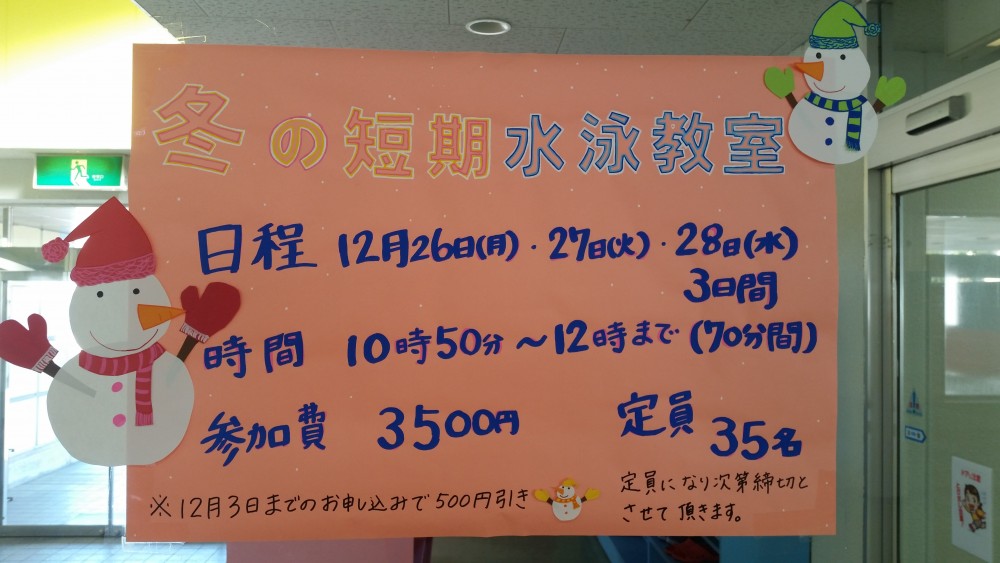 冬の短期水泳教室
日程 12月26日(月)・27日(火)・28日(水)
3日間
時間 10時50分～12時まで(70分間)
参加費 3500円 定員 35名
※12月3日までのお申し込みで500円引き
定員になり次第締切と
させて頂きます。